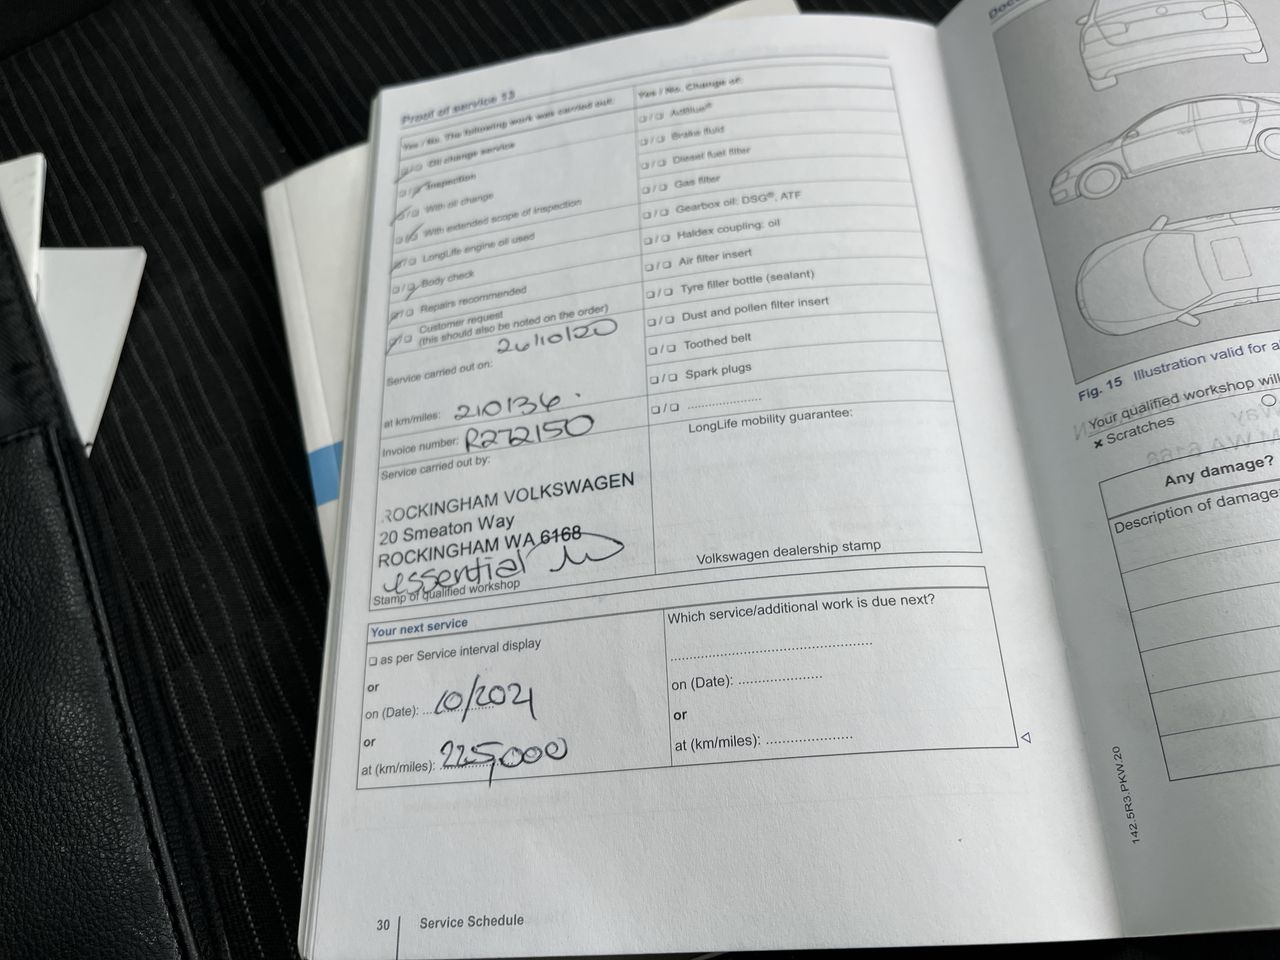 Proof of service 13
Yes / No. The following work was carried out:
☐/☐ Oil change service
☐/☐ Inspection
☐/☐ With oil change
☐/☐ With extended scope of inspection
☐/☐ LongLife engine oil used
☐/☐ Body check
☐/☐ Repairs recommended
☐/☐ Customer request
(this should also be noted on the order)
Service carried out on: 26/10/20
at km/miles: 210136.
Invoice number: R272150
Service carried out by:
ROCKINGHAM VOLKSWAGEN
20 Smeaton Way
ROCKINGHAM WA 6168
essential
Stamp of qualified workshop
Yes / No. Change of:
☐/☐ AdBlue®
☐/☐ Brake fluid
☐/☐ Diesel fuel filter
☐/☐ Gas filter
☐/☐ Gearbox oil: DSG®, ATF
☐/☐ Haldex coupling: oil
☐/☐ Air filter insert
☐/☐ Tyre filler bottle (sealant)
☐/☐ Dust and pollen filter insert
☐/☐ Toothed belt
☐/☐ Spark plugs
☐/☐ ....................
LongLife mobility guarantee:
Volkswagen dealership stamp
Your next service
☐ as per Service interval display
or
on (Date): 10/2021
or
at (km/miles): 225,000
Which service/additional work is due next?
on (Date): ....................
or
at (km/miles): ....................
30 Service Schedule
Fig. 15 Illustration valid for
Your qualified workshop will
× Scratches
Any damage?
Description of damage
142.5R3.PKW.20